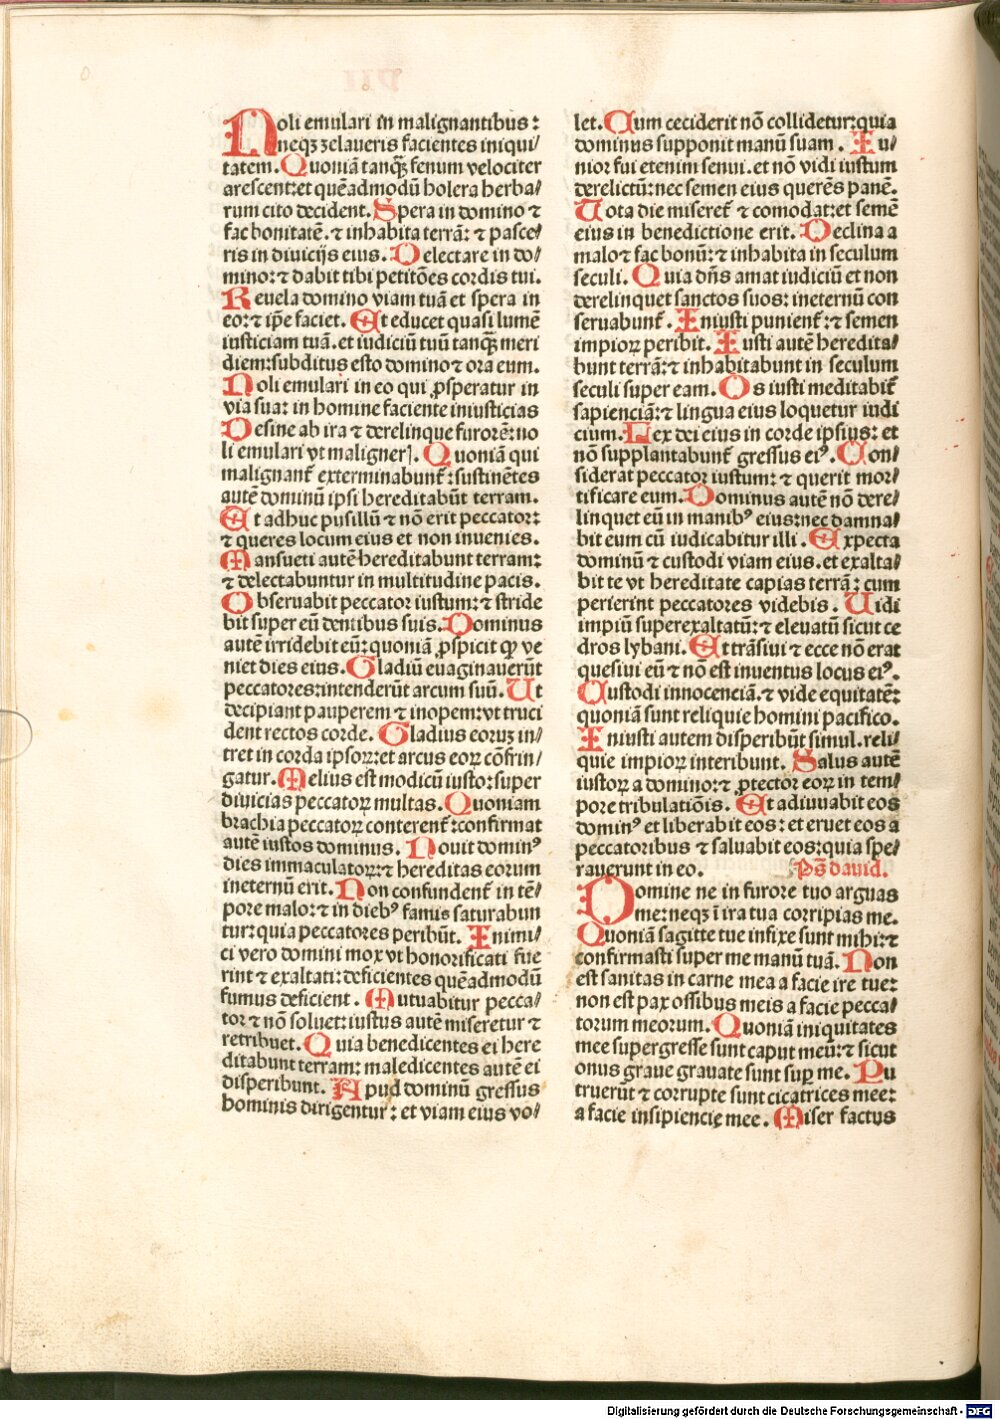 Noli emulari in malignantibus:
neqꝫ zelaueris facientes iniqui/
tatem. Quoniā tanqꝫ̄ fenum velociter
arescent:et quēadmodū holera herba/
rum cito decident. Spera in domino ⁊
fac bonitatē.⁊ inhabita terrā: ⁊ pasce/
ris in diuicijs eius. Delectare in do/
mino:⁊ dabit tibi petitōes cordis tui.
Reuela domino viam tuā et spera in
eo:⁊ ip̄e faciet. Et educet quasi lumē
iusticiam tuā.et iudiciū tuū tanqꝫ̄ meri
diem:subditus esto domino ⁊ ora eum.
Noli emulari in eo qui ꝓsperatur in
via sua: in homine faciente iniusticias
Desine ab ira ⁊ derelinque furorē:no
li emulari vt maligneris. Quoniā qui
malignant᷑ exterminabunt᷑:sustinētes
autē dominū ipsi hereditabūt terram.
Et adhuc pusillū ⁊ nō erit peccator:
⁊ queres locum eius et non inuenies.
Mansueti autē hereditabunt terram:
⁊ delectabuntur in multitudine pacis.
Obseruabit peccator iustum:⁊ stride
bit super eū dentibus suis. Dominus
autē irridebit eū:quoniā ꝓspicit ꝙ ve
niet dies eius. Gladiū euaginauerūt
peccatores:intenderūt arcum suū. Ut
decipiant pauperem ⁊ inopem:vt truci
dent rectos corde. Gladius eorūꝫ in/
tret in corda ipsoꝝ:et arcus eoꝝ cōfrin/
gatur. Melius est modicū iusto:super
diuicias peccatoꝝ multas. Quoniam
brachia peccatoꝝ conterent᷑:confirmat
autē iustos dominus. Nouit domin⁹
dies immaculatoꝝ:⁊ hereditas eorum
ineternū erit. Non confundent᷑ in tē/
pore malo:⁊ in dieb⁹ famis saturabun
tur:quia peccatores peribūt. Inimi/
ci vero domini mox vt honorificati fue
rint ⁊ exaltati:deficientes quēadmodū
fumus deficient. Mutuabitur pecca/
tor ⁊ nō soluet:iustus autē miseretur ⁊
retribuet. Quia benedicentes ei here
ditabunt terram: maledicentes autē ei
disperibunt. Apud dominū gressus
hominis dirigentur: et viam eius vo/
let. Cum ceciderit nō collidetur:quia
dominus supponit manū suam. Iu/
nior fui etenim senui.et nō vidi iustum
derelictū:nec semen eius querēs panē.
Tota die miseret᷑ ⁊ comodat:et semē
eius in benedictione erit. Declina a
malo ⁊ fac bonū:⁊ inhabita in seculum
seculi. Quia dn̄s amat iudiciū et non
derelinquet sanctos suos: ineternū con
seruabunt᷑. Iniusti punient᷑:⁊ semen
impioꝝ peribit. Iusti autē heredita/
bunt terrā:⁊ inhabitabunt in seculum
seculi super eam. Os iusti meditabit᷑
sapienciā:⁊ lingua eius loquetur iudi
cium. Lex dei eius in corde ipsius: et
nō supplantabunt᷑ gressus ei⁹. Con/
siderat peccator iustum: ⁊ querit mor/
tificare eum. Dominus autē nō dere/
linquet eū in manib⁹ eius:nec damna/
bit eum cū iudicabitur illi. Expecta
dominū ⁊ custodi viam eius.et exalta/
bit te vt hereditate capias terrā: cum
perierint peccatores videbis. Uidi
impiū superexaltatū:⁊ eleuatū sicut ce
dros lybani. Et trāsiui ⁊ ecce nō erat
quesiui eū ⁊ nō est inuentus locus ei⁹.
Custodi innocenciā.⁊ vide equitatē:
quoniā sunt reliquie homini pacifico.
Iniusti autem disperibūt simul.reli/
quie impioꝝ interibunt. Salus autē
iustoꝝ a domino:⁊ ꝓtector eoꝝ in tem/
pore tribulatiōis. Et adiuuabit eos
domin⁹ et liberabit eos: et eruet eos a
peccatoribus ⁊ saluabit eos:quia spe/
rauerunt in eo. Ps̄ dauid.
Domine ne in furore tuo arguas
me:neqꝫ ī ira tua corripias me.
Quoniā sagitte tue infixe sunt mihi:⁊
confirmasti super me manū tuā. Non
est sanitas in carne mea a facie ire tue:
non est pax ossibus meis a facie pecca/
torum meorum. Quoniā iniquitates
mee supergresse sunt caput meū:⁊ sicut
onus graue grauate sunt suꝑ me. Pu
truerūt ⁊ corrupte sunt cicatrices mee:
a facie insipiencię mee. Miser factus
Digitalisierung gefördert durch die Deutsche Forschungsgemeinschaft - DFG